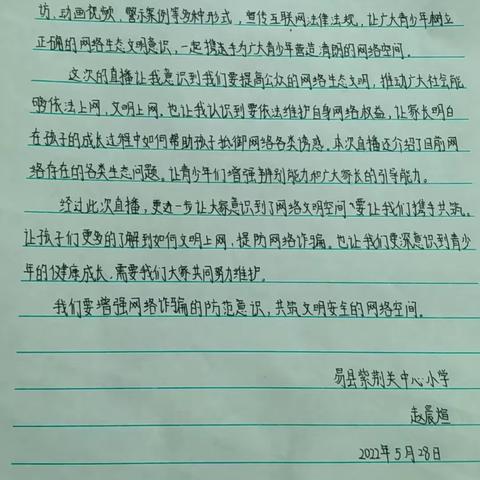 访、动画视频、警示案例等多种形式，宣传互联网法律法规，让广大青少年树立
正确的网络生态文明意识，一起携手为广大青少年营造清朗的网络空间。
这次的直播让我意识到我们要提高公众的网络生态文明，推动广大社会能
够依法上网，文明上网。也让我认识到要依法维护自身网络权益，让家长明白
在孩子的成长过程中如何帮助孩子抵御网络各类诱惑。本次直播还介绍了目前网
络存在的各类生态问题。让青少年们增强辨别能力和广大家长的引导能力。
经过此次直播，更进一步让大家意识到了网络文明空间要让我们携手共筑。
让孩子们更多的了解到如何文明上网，提防网络诈骗。也让我们更深意识到青少
年的健康成长，需要我们大家共同努力维护。
我们要增强网络诈骗的防范意识，共筑文明安全的网络空间。
易县紫荆关中心小学
赵晨煊
2022年5月28日